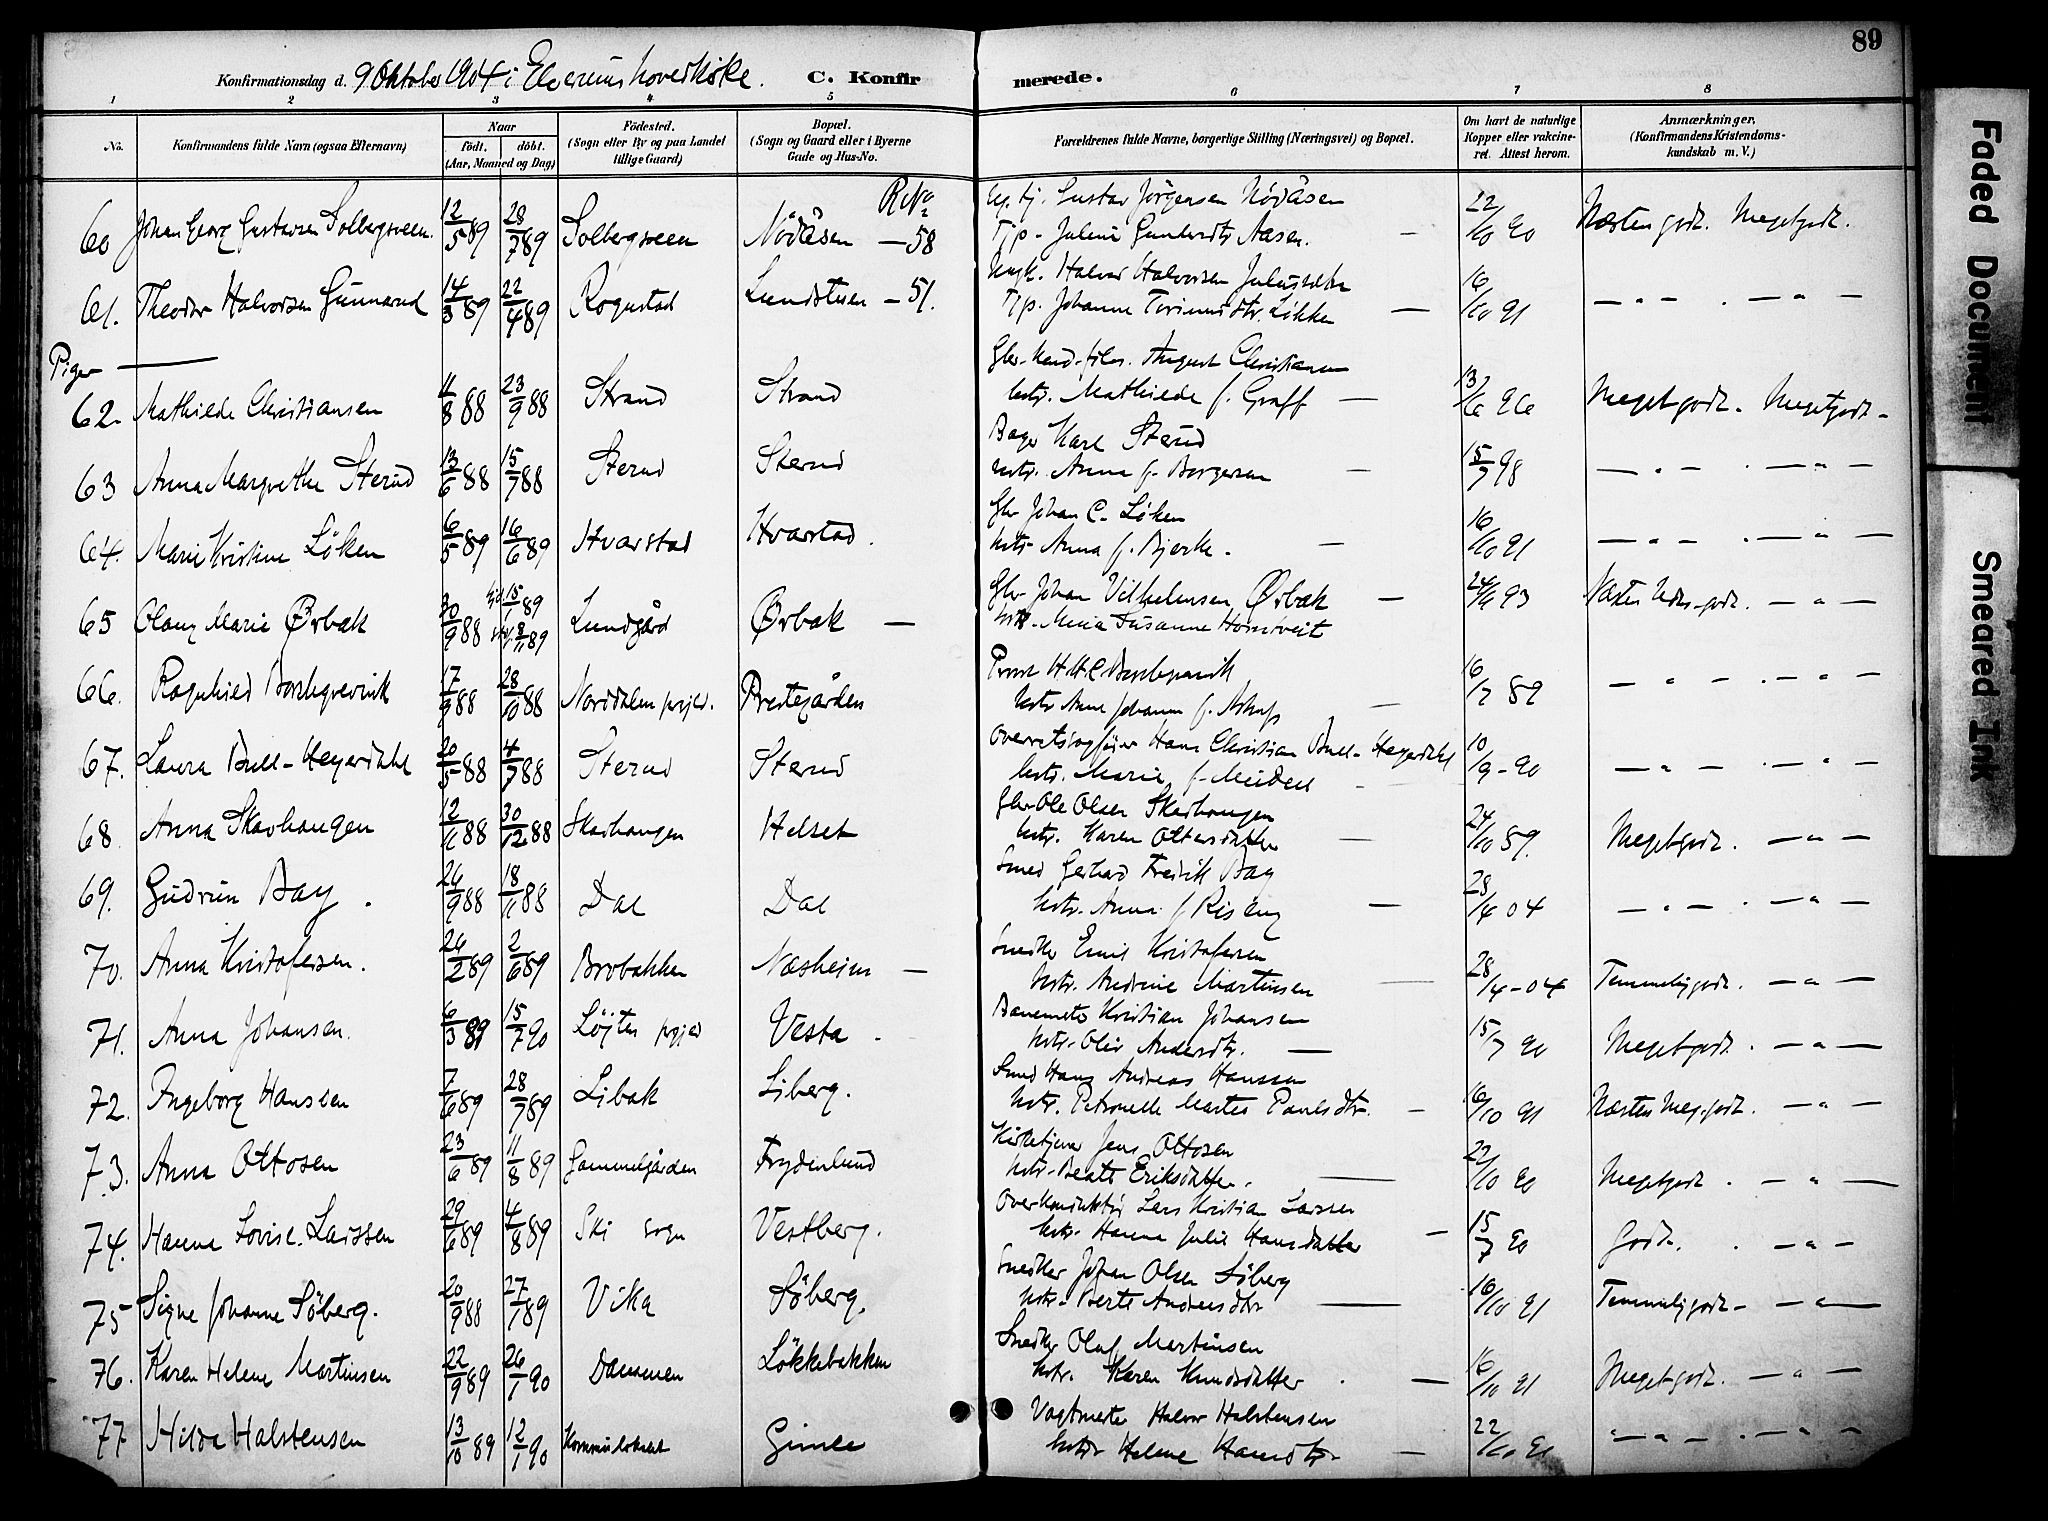 89
Konfirmationsdag d. 9 Oktober 1904 i Elverums hovedkirke. C. Konfirmerede.
1 2 3 4 5 6 7 8
No. Konfirmandens fulde Navn (ogsaa Efternavn) Naar født. døbt. (Aar, Maaned og Dag) Fødested. (Sogn eller By og paa Landet tillige Gaard) Bopæl. (Sogn og Gaard eller i Byerne Gade og Hus-No. Forældrenes fulde Navne, borgerlige Stilling (Næringsvei) og Bopæl. Om havt de naturlige Kopper eller vaccineret. Attest herom. Anmærkninger, (Konfirmandens Kristendomskundskab m. V.)
60 Johan Georg Gustavsen Solbergsveen. 12/5 89 28/7 89 Solbergsveen Nödåsen — 58 Gustav Jörgensen Nödåsen
Tjp. Juline Gundersdtr Aasen. — 22/10 90 Næsten godt. Megetgodt.
61. Theodor Halvorsen Gunnarud 14/3 89 22/4 89 Rogustad Lundstuen — 51. Ungk. Halvor Halvorsen Julussæter
Tjp. Johanne Løkken — 16/10 91 — „ — . — „ —
Piger —
62. Mathilde Christiansen 11/8 88 23/9 88 Strand Strand Gbr. August Christiansen
hstr. Mathilde f. Graff — 13/6 96 Megetgodt. Megetgodt.
63 Anna Margrethe Sterud 13/6 88 15/7 88 Sterud Sterud Bager Karl Sterud
hstr. Anna f. Borgersen — 15/7 98 — „ — . — „ —
64. Marie Kristine Löken 6/5 89 16/6 89 Hvarstad Hvarstad. Gbr Johan C. Löken
hstr Anna f. Bjerke. — 16/10 91 — „ — . — „ —
65 Olaug Marie Ørbæk 30/9 88 15/1 89 Lundgård Ørbæk — Gbr. Johan Vilhelmsen Ørbæk —
Susanne Horntveit 24/6 93 — „ —
66. Ragnhild Borchgrevink 17/9 88 28/10 88 Norddalen prgjeld. Prestegården Provst H. H. C. Borchgrevink
hstr Anne Johanne f. Askup — 16/7 89 — „ — . — „ —
67. Laura Bull-Heyerdahl 20/5 88 4/7 88 Sterud Sterud Overretssagfører Hans Christian Bull-Heyerdahl
hstr. Marie f. Meidell 10/9 - 90 — „ — . — „ —
68. Anna Skavhaugen 12/11 88 30/12 88 Skavhaugen Helset Gbr Ole Olsen Skavhaugen
hstr. Karen Ottersdatter — 24/10 89. Megetgodt. — „ —
69. Gudrun Bay. 26/9 88 18/11 88 Dal Dal Smed Gerhard Fredrik Bay
hstr. Anna f Riseng — 28/4 04 — „ — . — „ —
70. Anna Kristofersen. 26/2 89 2/6 89 Brobakken Næsheim — Snedker Emil Kristofersen
hstr. Andrine Martinsen — 28/4 - 04 Temmeliggodt. — „ —
71. Anna Johansen. 6/3 89 15/7 90 Löjten prgjeld Vesta. Banemester Kristian Johansen
hstr. Oliv Andersdtr. — 15/7 90 Megetgodt. — „ —
72. Ingeborg Hanssen 7/6 89 28/7 89 Libak Liberg. Smed Hans Andreas Hanssen
hstr. Petronelle Martea Paulsdtr. — 16/10 91 Næsten Meg. godt. — „ —
73. Anna Ottosen 23/6 89 11/8 89 Gammelgården Frydenlund Kirketjener Jens Ottosen
hstr. Beate Eriksdatter. — 22/10 90 Megetgodt. — „ —
74. Hanna Lovise Larssen 29/6 89 4/8 89 Ski sogn Vestberg. Overkonduktør Lars Kristian Larssen
hstr. Hanna Julie Hansdatter — 15/7 90 Godt. . — „ —
75 Signe Johanne Söberg. 20/9 88 27/7 89 Vika Söberg. Snedker Johan Olsen Söberg
hstr. Berte Andreasdtr — 16/10 91 Temmeliggodt — „ —
76. Karen Helene Martinsen 22/9 89 26/1 90 Dammen Lökkebakken Snedker Oluf Martinsen
hstr. Karen Knudsdatter. — 16/10 91 Megetgodt. — „ —
77 Hilda Halstensen 13/10 89 12/1 90 Kommunelokalet Gimle Vagtmester Halvor Halstensen
hstr Helene Hansdtr — 22/10 90 — „ — . — „ —
Faded Document
Smeared Ink